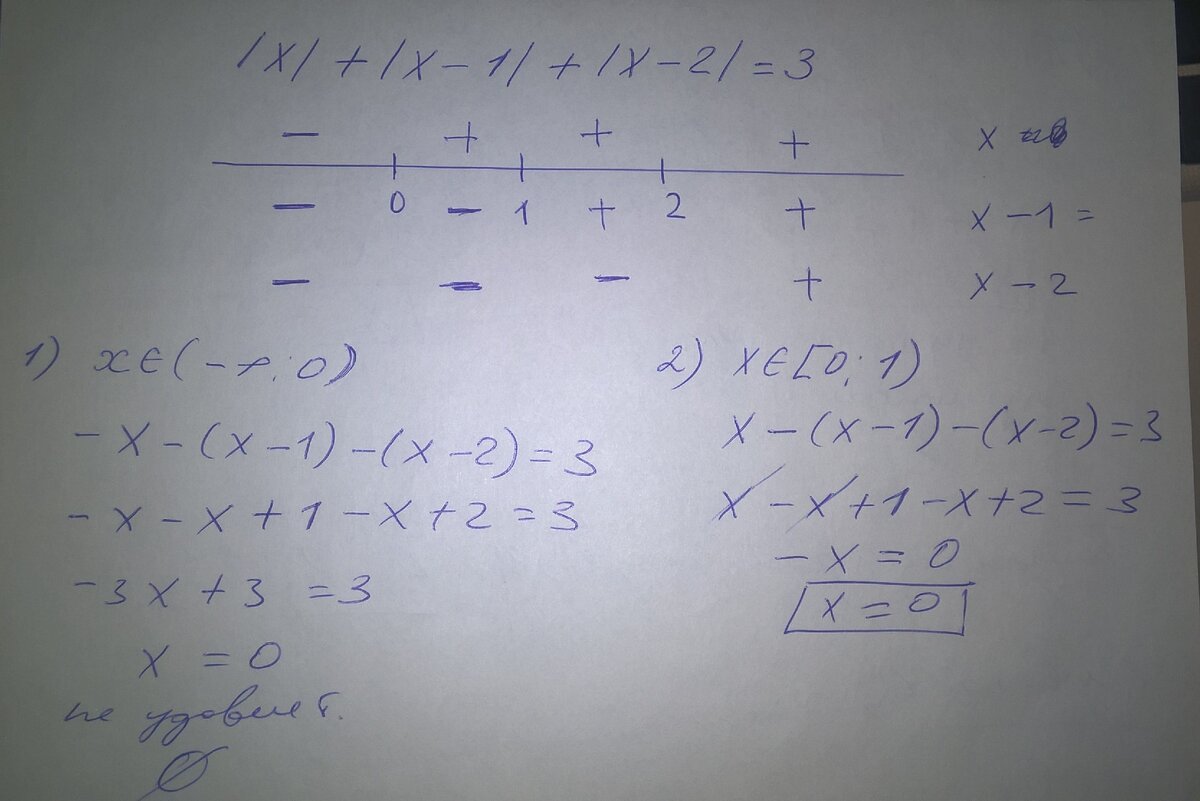 |x| + |x - 1| + |x - 2| = 3
- + + + x
0 1 2
- - + + x - 1 =
- - - + x - 2
1) x ∈ (-∞; 0)
-x - (x - 1) - (x - 2) = 3
-x - x + 1 - x + 2 = 3
-3x + 3 = 3
x = 0
не удовлет.
∅
2) x ∈ [0; 1)
x - (x - 1) - (x - 2) = 3
x - x + 1 - x + 2 = 3
-x = 0
x = 0